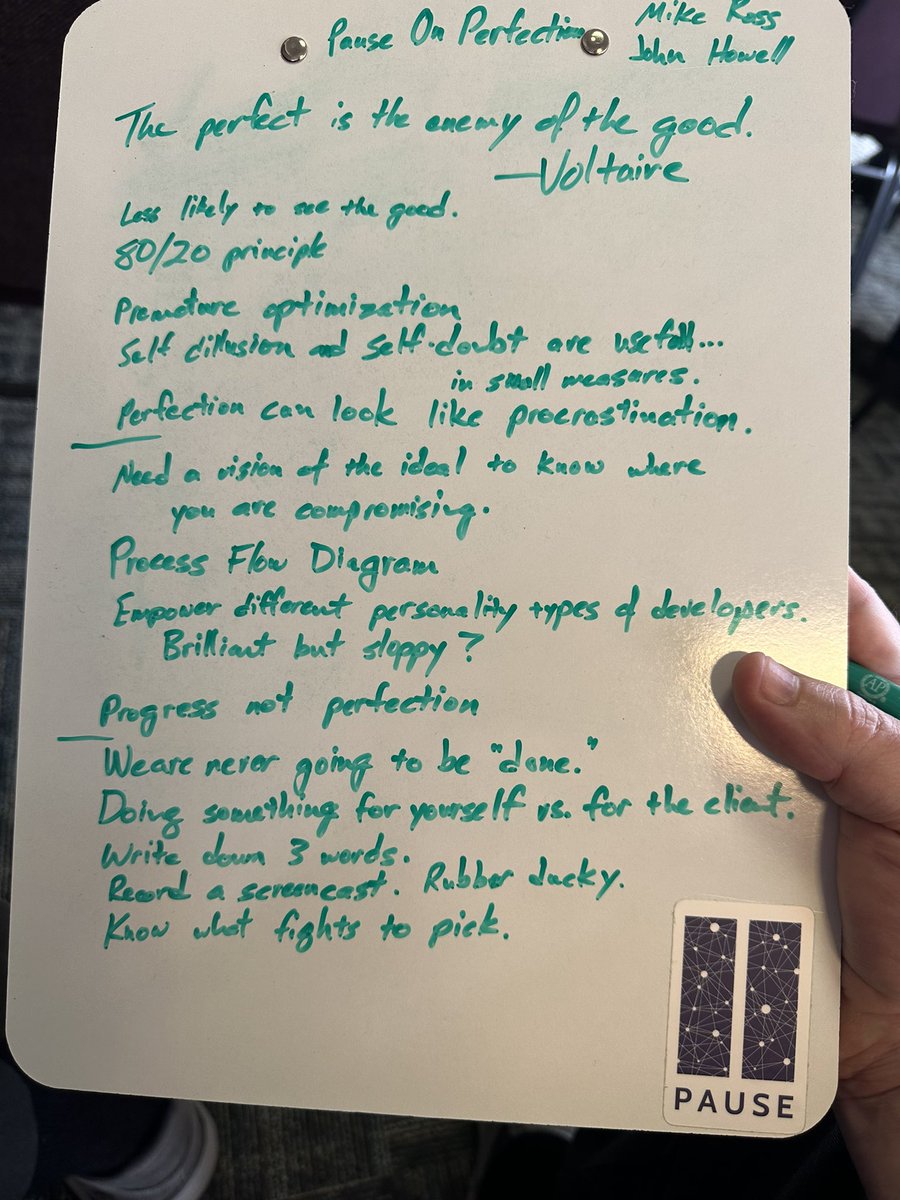 Pause On Perfection
Mike Ross
John Howell
The perfect is the enemy of the good.
—Voltaire
Less likely to see the good.
80/20 principle
Premature optimization
Self dillusion and self-doubt are usefull...
in small measures.
Perfection can look like procrastination.
Need a vision of the ideal to know where
you are compromising.
Process Flow Diagram
Empower different personality types of developers.
Brilliant but sloppy?
Progress not perfection
We are never going to be "done."
Doing something for yourself vs. for the client.
Write down 3 words.
Record a screencast. Rubber ducky.
Know what fights to pick.
AP
PAUSE